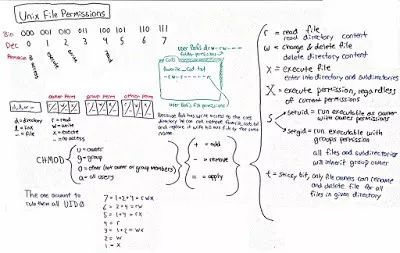 Unix File Permissions
Bin 000 001 010 011 100 101 110 111
Dec 0 1 2 3 4 5 6 7
no access
execute
write
read
User Bob's drwx-rw----
Cats
favorite_cat.txt
User Bob's file permissions
owner perm group perm other perm
d, l, - r w x r w x r w x
d = directory
l = link
- = file
r = read
w = write
x = execute
- = no access
Because Bob has write access to the cats
directory he can not remove favorite_cat.txt
and replace it with his own file by the same
name.
CHMOD
u = owner
g = group
o = other (not owner or group members)
a = all users
+ = add
- = remove
= = apply
The one account to
rule them all UID 0
7 = 1+2+4 = rwx
6 = 2+4 = rw
5 = 1+4 = rx
4 = r
3 = 1+2 = wx
2 = w
1 = x
r = read file
read directory content
w = change & delete file
delete directory content
x = execute file
enter into directory and subdirectories
X = execute permission, regardless
of current permissions
s
setuid = run executable as owner
with owners permissions
setgid = run executable with
groups permission
all files and subdirectories
will inherit group owner
t = sticky bit, only file owners can rename
and delete file for all
files in given directory